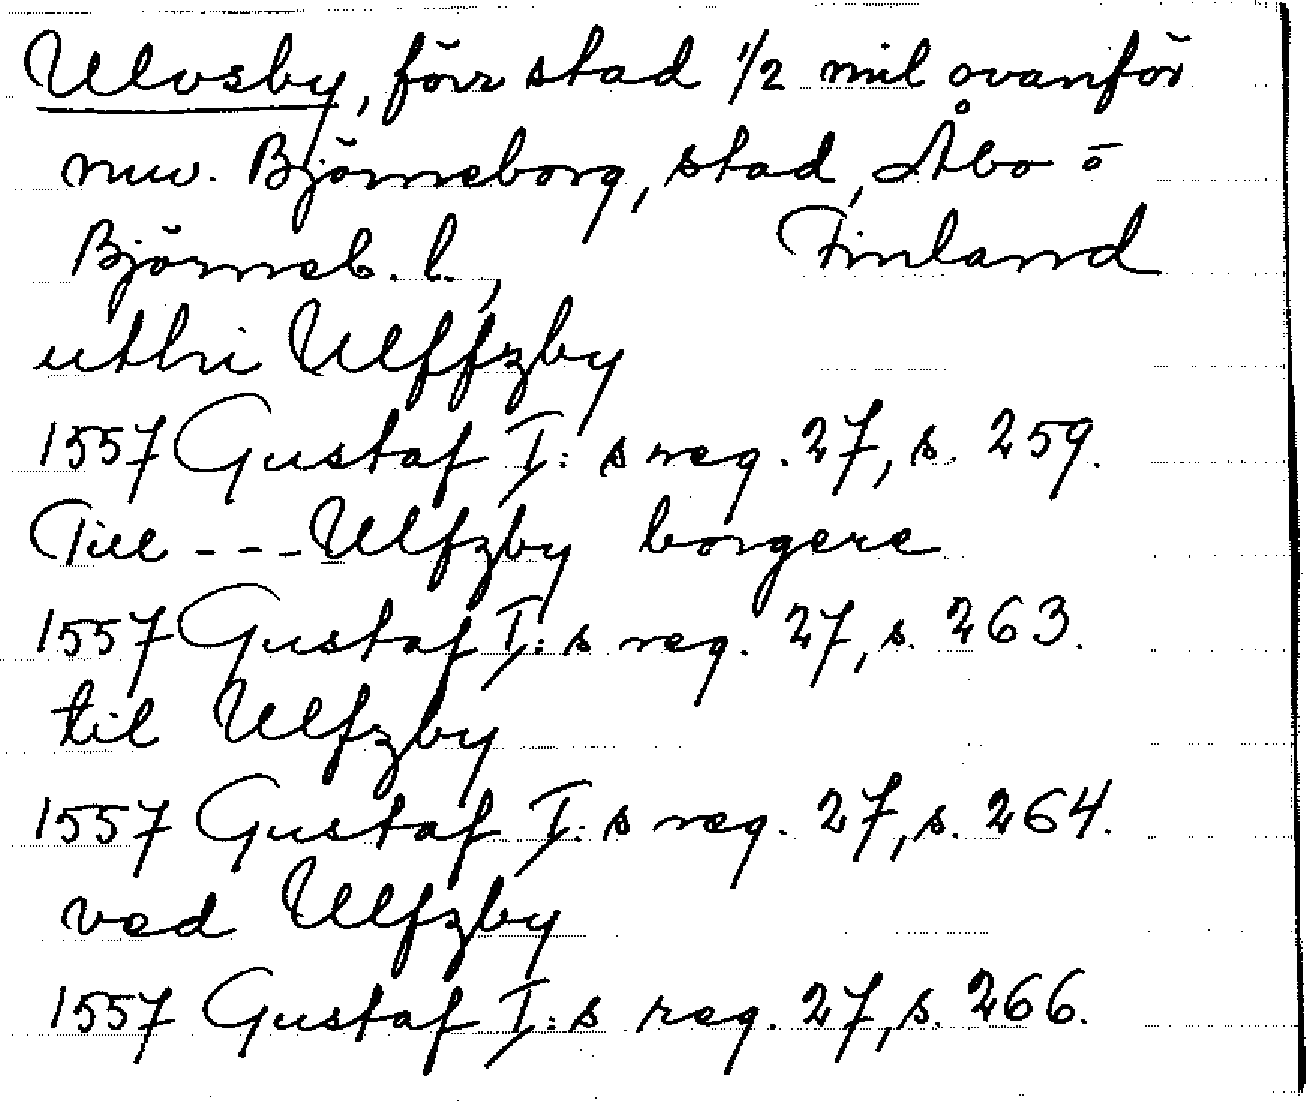 Ulvsby, förr stad 1/2 mil ovanför
nuv. Björneborg, stad, Åbo o
Björneb. l., Finland
uthi Ulffzby
1557 Gustaf I: s reg. 27, s. 259.
Till --- Ulfzby borgere
1557 Gustaf I: s reg. 27, s. 263.
til Ulfzby
1557 Gustaf I: s reg. 27, s. 264.
ved Ulfzby
1557 Gustaf I: s reg. 27, s. 266.